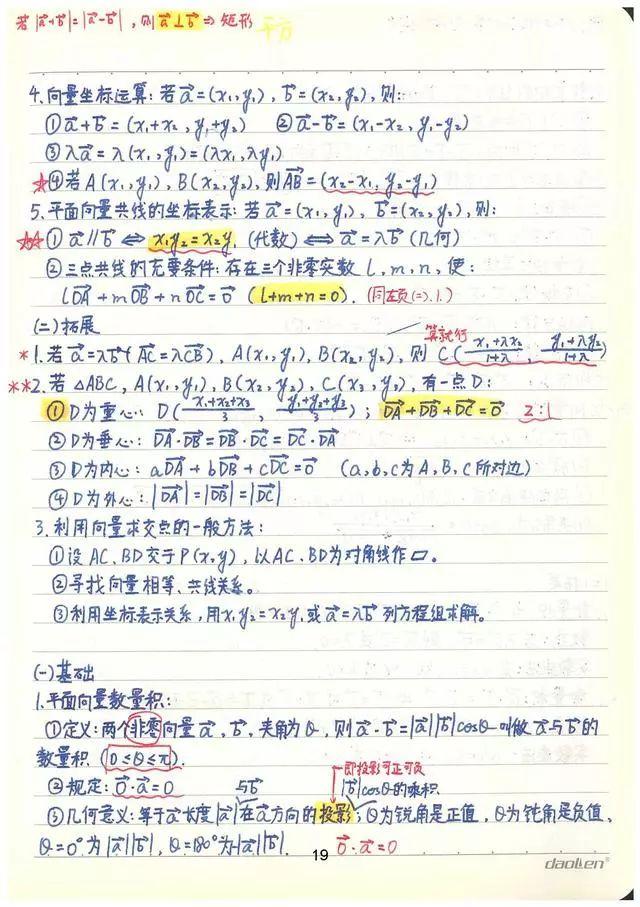 若|a⃗+b⃗|=|a⃗-b⃗|,则a⃗⊥b⃗⇒矩形 平方
4.向量坐标运算:若a⃗=(x₁,y₁),b⃗=(x₂,y₂),则:
①a⃗+b⃗=(x₁+x₂,y₁+y₂) ②a⃗-b⃗=(x₁-x₂,y₁-y₂)
③λa⃗=λ(x₁,y₁)=(λx₁,λy₁)
☆④若A(x₁,y₁),B(x₂,y₂),则AB⃗=(x₂-x₁,y₂-y₁)
5.平面向量共线的坐标表示:若a⃗=(x₁,y₁),b⃗=(x₂,y₂),则:
☆☆①a⃗∥b⃗⇔x₁y₂=x₂y₁(代数)⇔a⃗=λb⃗(几何)
②三点共线的充要条件:存在三个非零实数l,m,n,使:
lDA⃗+mOB⃗+nOC⃗=0⃗(l+m+n=0).(同左页(二).1.)
(二)拓展 算就行
*1.若a⃗=λb⃗(AC⃗=λCB⃗),A(x₁,y₁),B(x₂,y₂),则C((x₁+λx₂)/(1+λ),(y₁+λy₂)/(1+λ))
**2.若△ABC,A(x₁,y₁),B(x₂,y₂),C(x₃,y₃),有一点D:
①D为重心:D((x₁+x₂+x₃)/3,(y₁+y₂+y₃)/3);DA⃗+DB⃗+DC⃗=0⃗ 2:1
②D为垂心:DA⃗·DB⃗=DB⃗·DC⃗=DC⃗·DA⃗
③D为内心:aDA⃗+bDB⃗+cDC⃗=0⃗ (a,b,c为A,B,C所对边)
④D为外心:|DA⃗|=|DB⃗|=|DC⃗|
3.利用向量求交点的一般方法:
①设AC、BD交于P(x,y),以AC、BD为对角线作▱。
②寻找向量相等、共线关系。
③利用坐标表示关系,用x₁y₂=x₂y₁或a⃗=λb⃗列方程组求解。
(一)基础
1.平面向量数量积:
①定义:两个非零向量a⃗,b⃗,夹角为θ,则a⃗·b⃗=|a⃗||b⃗|cosθ叫做a⃗与b⃗的
数量积(0≤θ≤π)
即投影可正可负
②规定:0⃗·a⃗=0 与b⃗ |b⃗|cosθ的乘积.
③几何意义:等于a⃗长度|a⃗|在a⃗方向的投影;θ为锐角是正值,θ为钝角是负值,
θ=0°为|a⃗||b⃗|,θ=180°为-|a⃗||b⃗|. 0⃗·a⃗=0
19
daolen®